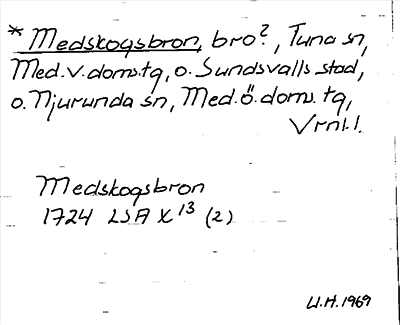 * Medskogsbron, bro?, Tuna sn,
Med. v. doms. tg, o. Sundsvalls stad,
o. Njurunda sn, Med. ö. doms. tg,
Vrnl. l.
Medskogsbron
1724 LSA X 13 (2)
U.H. 1969